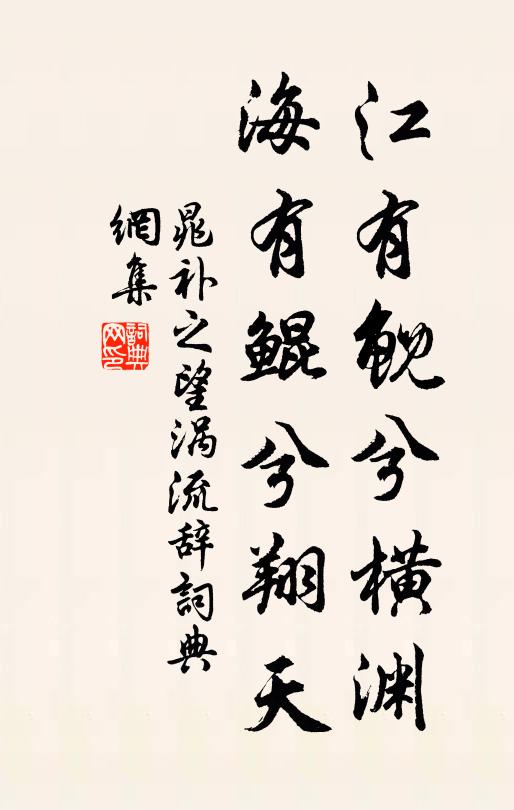 江有鲵兮横渊
海有鲲兮翔天
晁补之望涡流辞詞典
網集
詞典网印